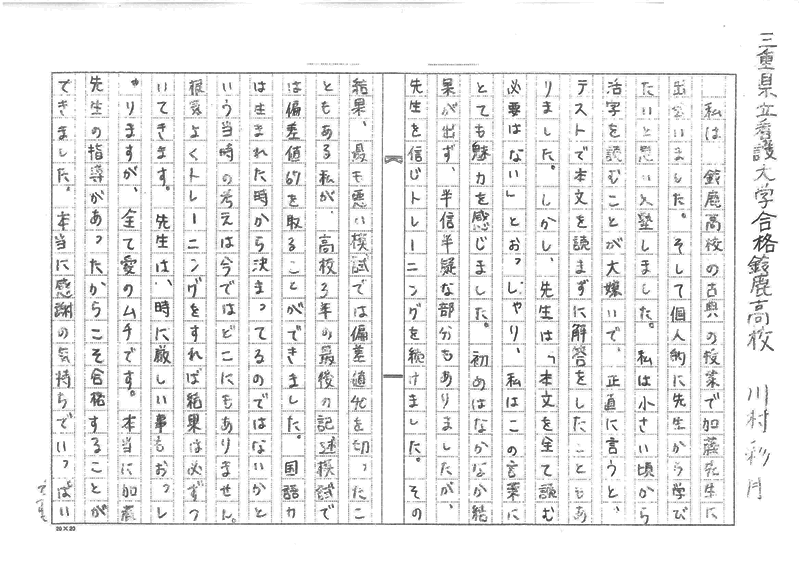 三重県立看護大学合格鈴鹿高校　川村彩月
私は、鈴鹿高校の古典の授業で加藤先生に
出会いました。そして個人的に先生から学び
たいと思い入塾しました。私は小さい頃から
活字を読むことが大嫌いで、正直に言うと、
テストで本文を読まずに解答をしたこともあ
りました。しかし、先生は「本文を全て読む
必要はない」とおっしゃり、私はこの言葉に
とても魅力を感じました。初めはなかなか結
果が出ず、半信半疑な部分もありましたが、
先生を信じトレーニングを続けました。その
結果、最も悪い模試では偏差値40を切ったこ
ともある私が、高校3年の最後の記述模試で
は偏差値67を取ることができました。国語力
は生まれた時から決まってるのではないかと
いう当時の考えは今ではどこにもありません。
根気よくトレーニングをすれば結果は必ずつ
いてきます。先生は、時に厳しい事もおっし
ゃりますが、全て愛のムチです。本当に加藤
先生の指導があったからこそ合格することが
できました。本当に感謝の気持ちでいっぱい
です。
20×20